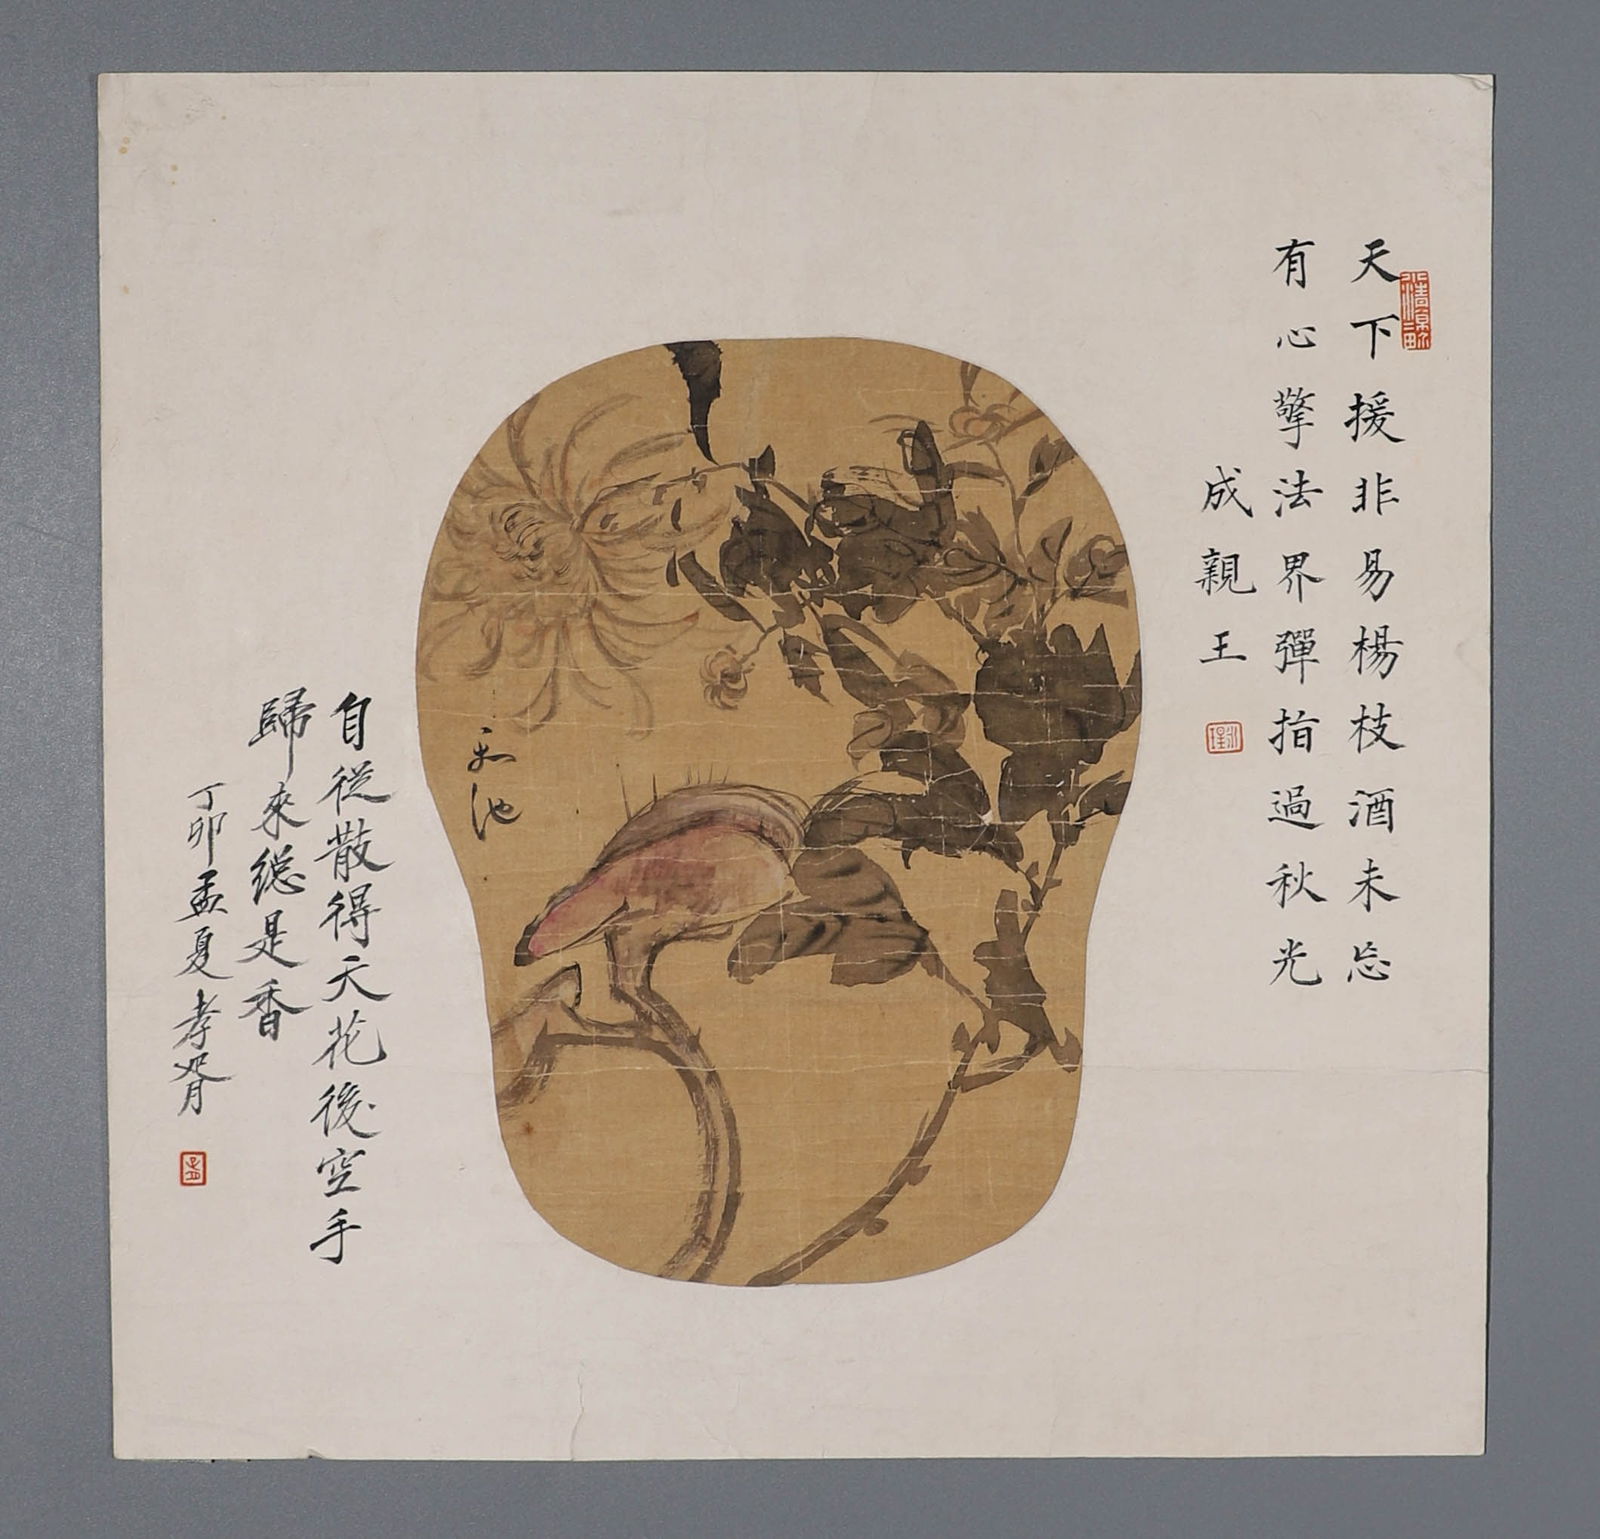 天下援非易楊枝酒未忘
有心擎法界彈指過秋光
成親王
永瑆
天池
自從散得天花後空手
歸來總是香
丁卯孟夏孝胥